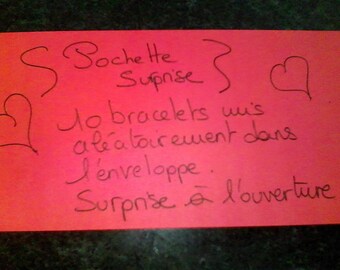 Pochette
Surprise
10 bracelets mis
aléatoirement dans
l'enveloppe.
Surprise à l'ouverture